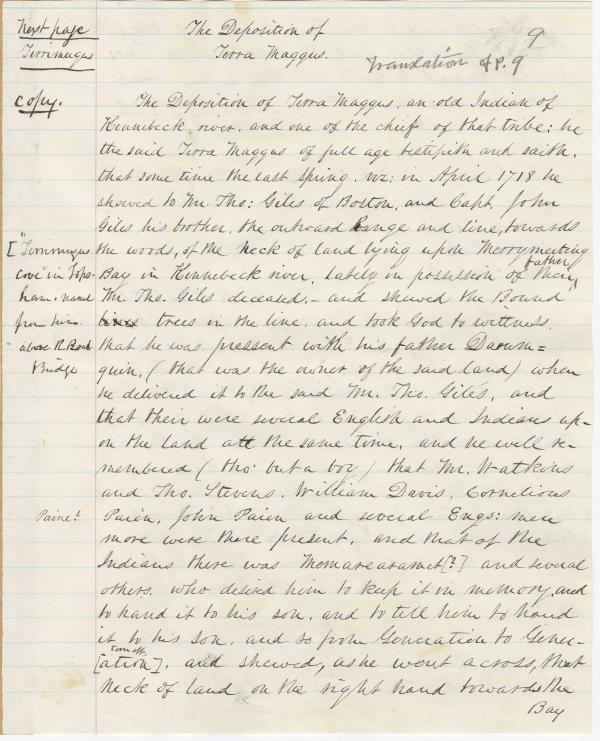 Next page
Terrimugus
The Deposition of
Terra Maggus.
9
Translation &P. 9
Copy.
The Deposition of Terra Maggus, an old Indian of
Kennebeck river, and one of the chief of that tribe: he
the said Terra Maggus of full age testifieth and saith,
that some time the last spring, viz: in April 1718 he
shewed to Mr. Tho: Giles of Boston, and Capt. John
Giles his brother, the outward Range and line, towards
["Terrimugus
cove" in Tops-
ham - named
from him.
above R. Road
Bridge
the woods, of the Neck of land lying upon Merrymeeting
Bay in Kennebeck river, lately in possession of their father
Mr. Tho. Giles deceased, - and shewed the Bound
trees in the line, and took God to wittness,
that he was pressent with his father Darum=
quin, (that was the owner of the said land) when
he delivered it to the said Mr. Tho. Giles, and
that their were several English and Indians up-
on the land att the same time, and he well re-
membered (tho' but a boy) that Mr. Watkins
and Tho. Stevens, William Davis, Cornelious
Paine?
Paien, John Paien and several Engs: men
more were there present, and that of the
Indians there was Momarearamet[?] and several
others, who desired him to keep it in memory, and
to hand it to his son, and to tell him to hand
it to his son, and so from Generation to Gener-
torn off.
[ation], and shewed, as he went across, that
Neck of land on the right hand towards the
Bay